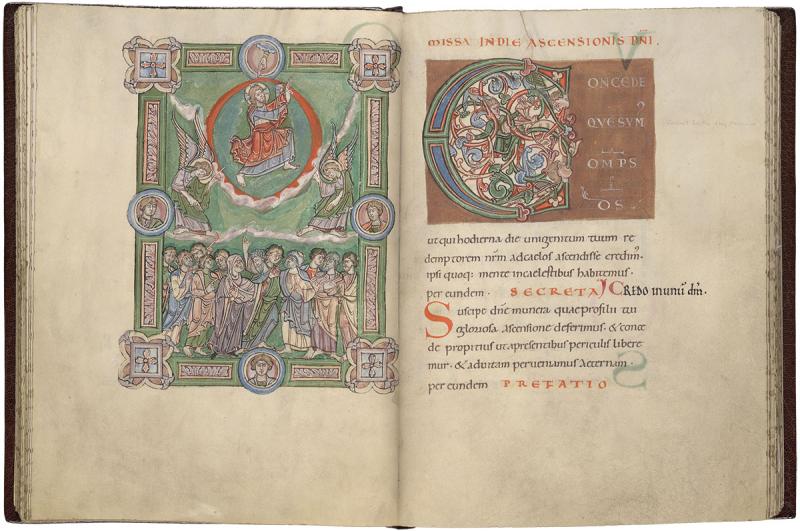 MISSA IN DIE ASCENSIONIS DNI.
CONCEDE
QVESVM
OMPS
OS
ut qui hodierna die unigenitum tuum re
demptorem nrm ad caelos ascendisse credim.
ipsi quoq; mente in caelestibus habitemus.
per eundem. SECRETA CREDO in unū dm.
Suscipe dne munera quae pro filii tui
gloriosa ascensione deferimus. & conce
de propitius ut a presentibus periculis libere
mur. & ad uitam perueniamus aeternam.
per eundem PREFATIO